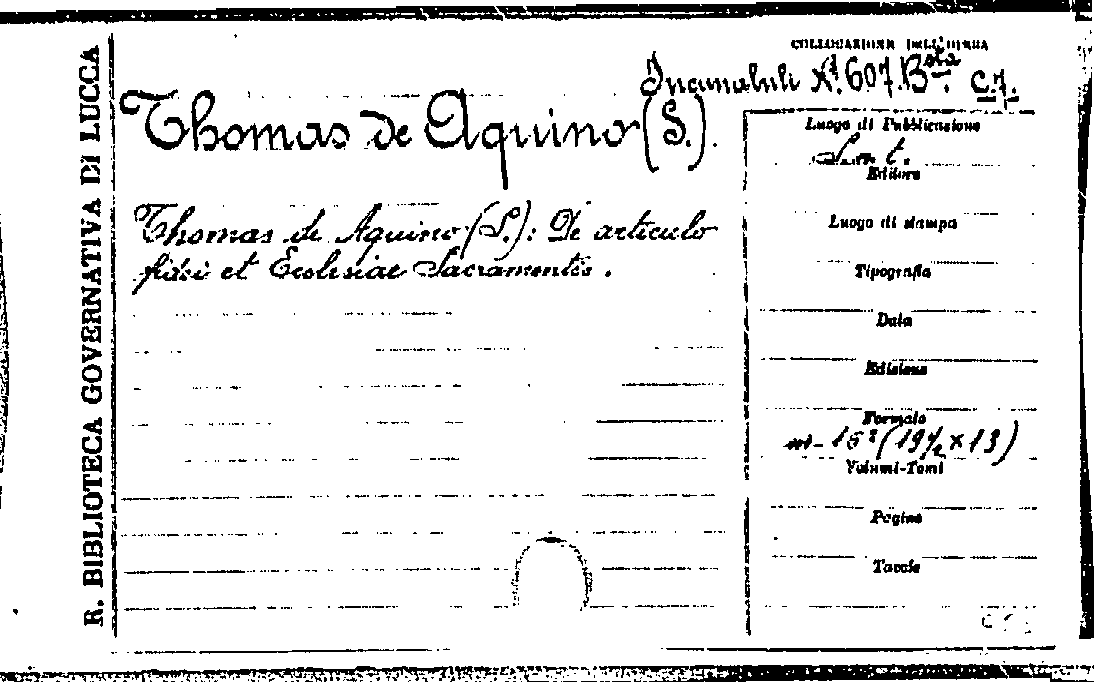 R. BIBLIOTECA GOVERNATIVA DI LUCCA
COLLOCAZIONE DELL'OPERA
Incunabuli N.º 607. Bta. C.7.
Thomas de Aquino (S.).
Thomas de Aquino (S.): De articulo
fidei et Ecclesiae Sacramentis.
Luogo di Pubblicazione
S. n. t.
Editore
Luogo di stampa
Tipografia
Data
Edizione
Formato
in-16º (19½ x 13)
Volumi-Tomi
Pagine
Tavole